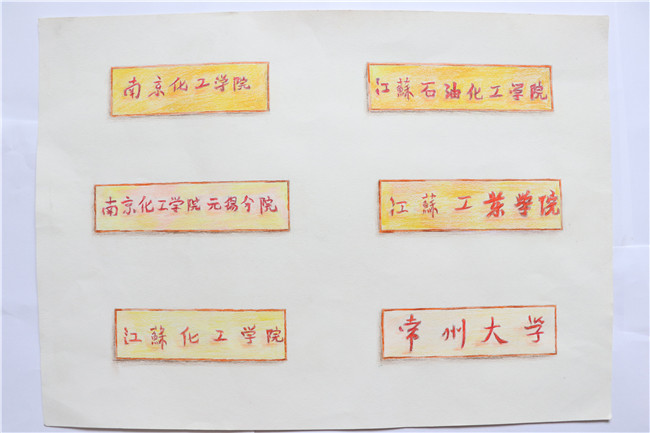 南京化工学院
南京化工学院无锡分院
江蘇化工学院
江蘇石油化工学院
江蘇工業学院
常州大学